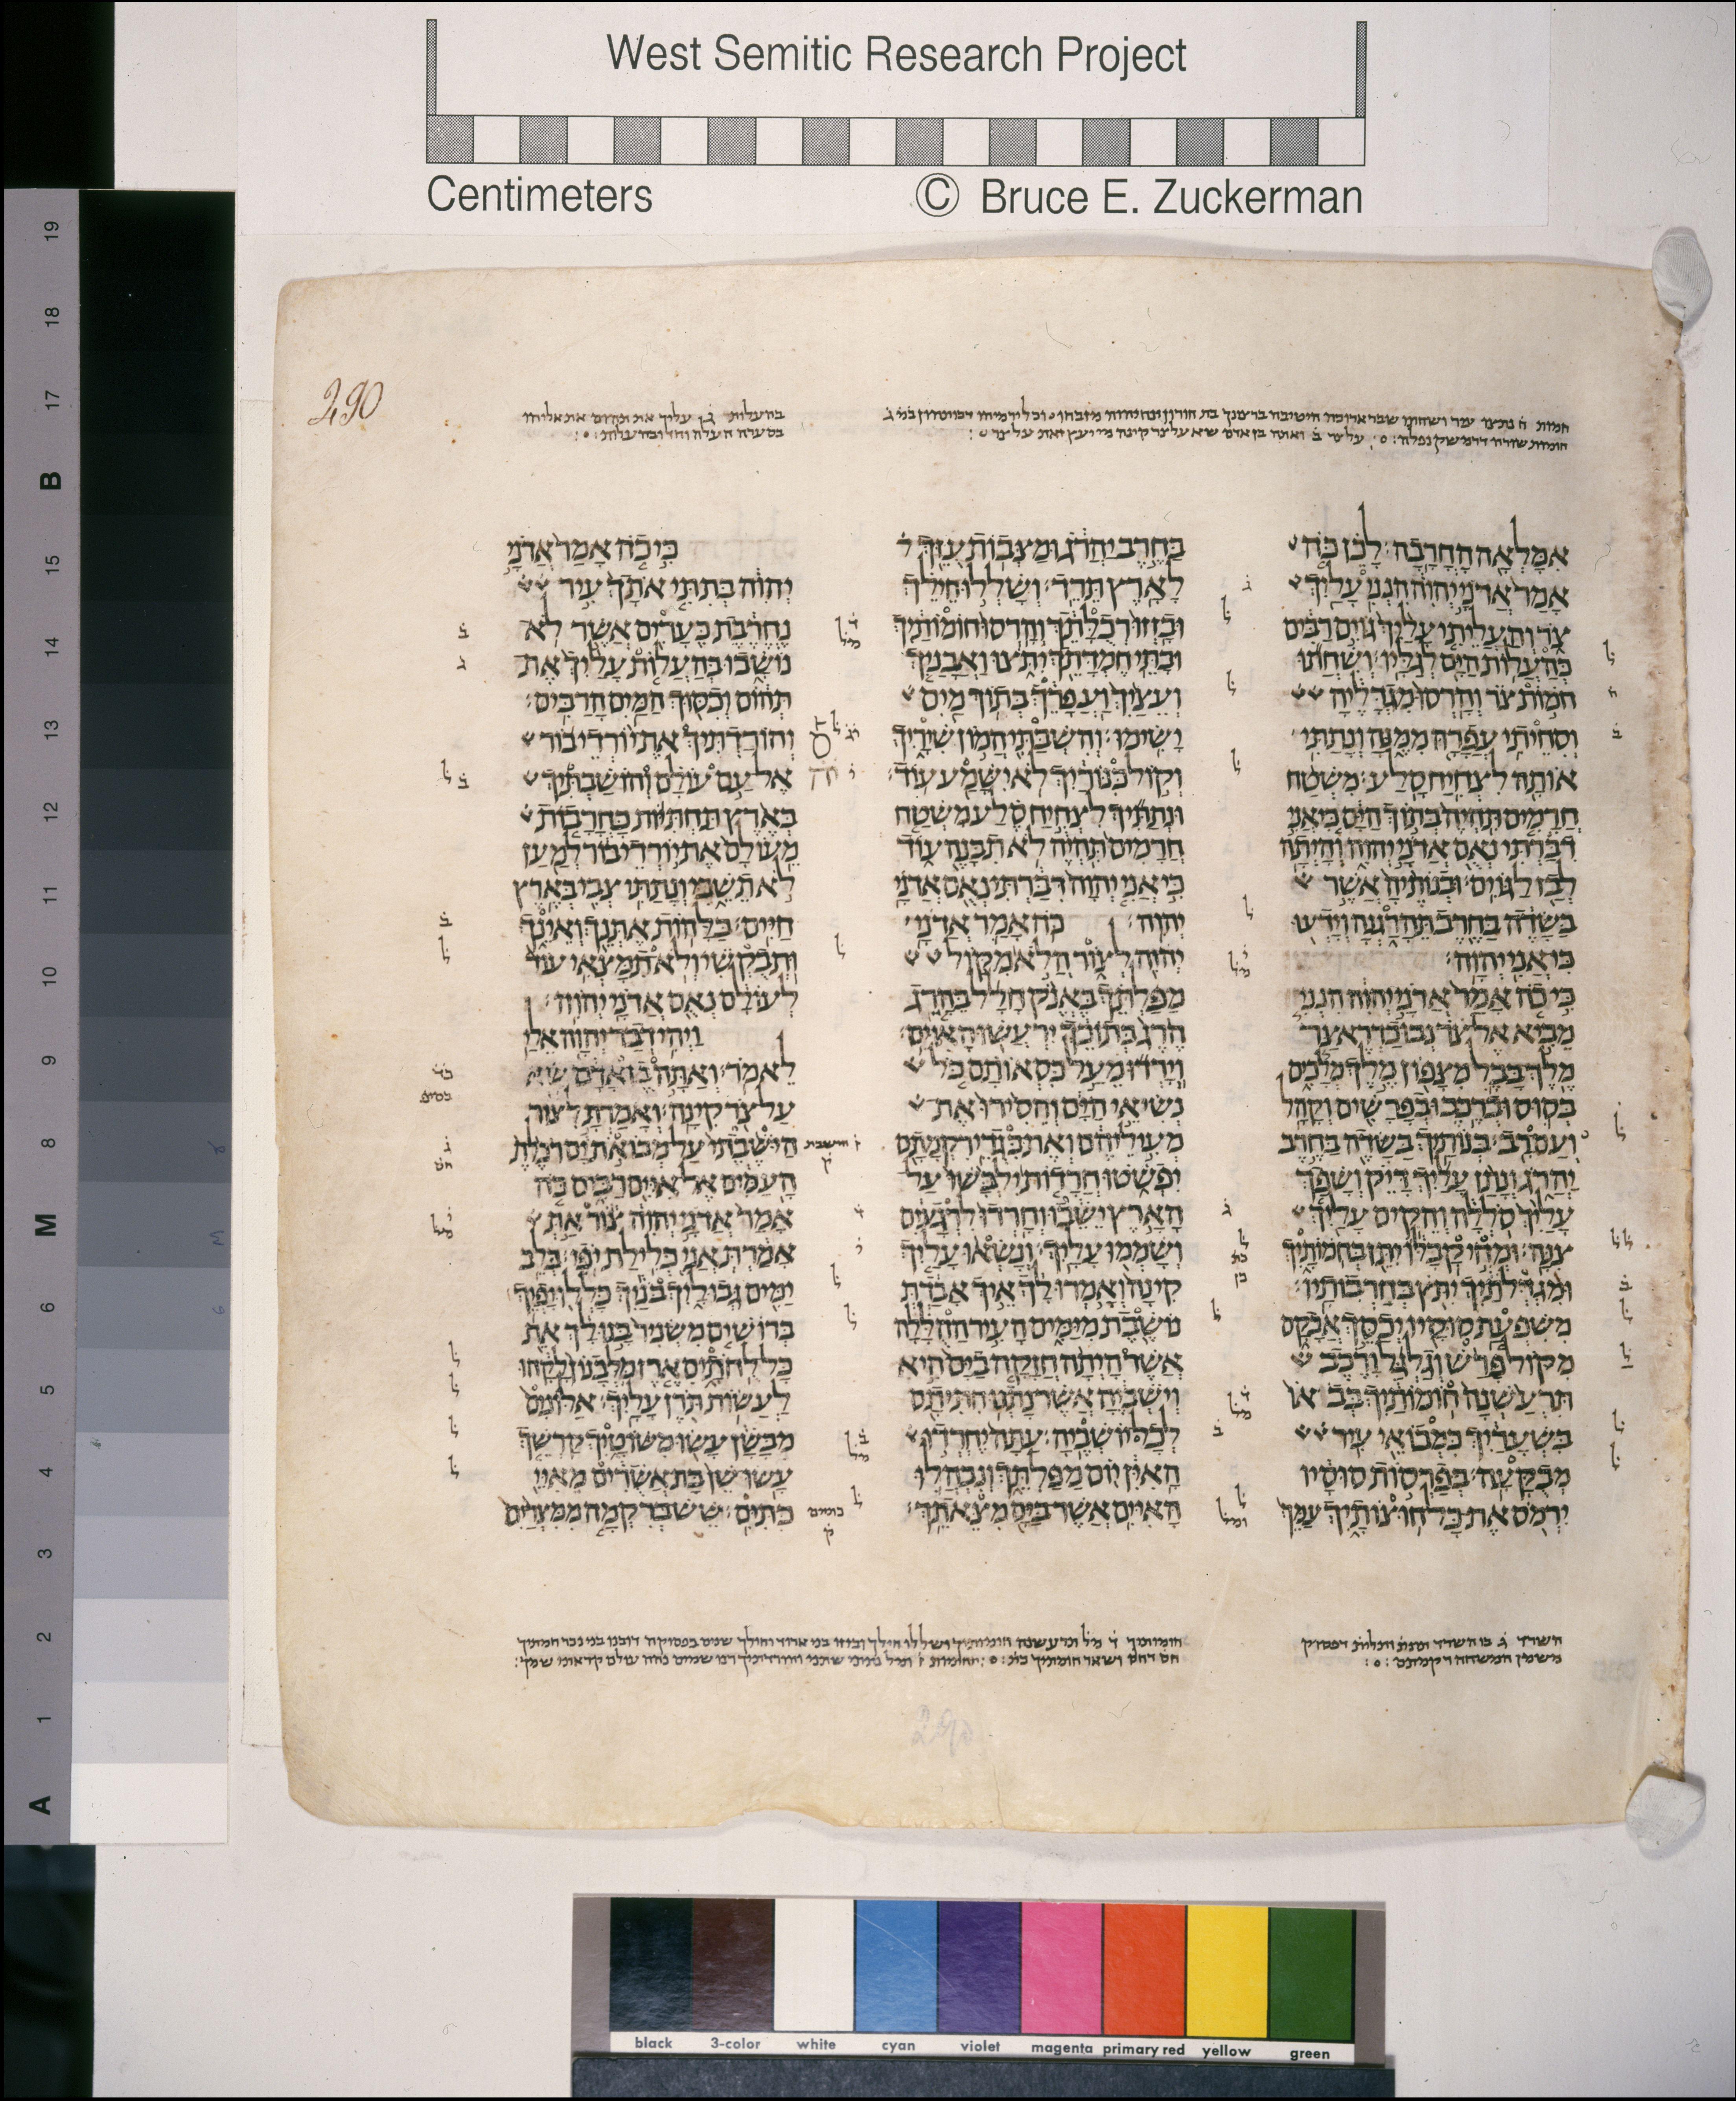 West Semitic Research Project
Centimeters © Bruce E. Zuckerman
290
אִמָּלְאָה הָחֳרָבָה׃ לָכֵן כֹּה
אָמַר אֲדֹנָי יְהוִה הִנְנִי עָלַיִךְ
צֹר וְהַעֲלֵיתִי עָלַיִךְ גּוֹיִם רַבִּים
כְּהַעֲלוֹת הַיָּם לְגַלָּיו׃ וְשִׁחֲתוּ
חֹמוֹת צֹר וְהָרְסוּ מִגְדָּלֶיהָ
וְסִחֵיתִי עֲפָרָהּ מִמֶּנָּה וְנָתַתִּי
אוֹתָהּ לִצְחִיחַ סָלַע׃ מִשְׁטַח
חֲרָמִים תִּהְיֶה בְּתוֹךְ הַיָּם כִּי אֲנִי
דִבַּרְתִּי נְאֻם אֲדֹנָי יְהוִה וְהָיְתָה
לְבַז לַגּוֹיִם׃ וּבְנוֹתֶיהָ אֲשֶׁר
בַּשָּׂדֶה בַּחֶרֶב תֵּהָרַגְנָה וְיָדְעוּ
כִּי אֲנִי יְהוָה׃
כִּי כֹה אָמַר אֲדֹנָי יְהוִה הִנְנִי
מֵבִיא אֶל צֹר נְבוּכַדְרֶאצַּר
מֶלֶךְ בָּבֶל מִצָּפוֹן מֶלֶךְ מְלָכִים
בְּסוּס וּבְרֶכֶב וּבְפָרָשִׁים וְקָהָל
וְעַם רָב׃ בְּנוֹתַיִךְ בַּשָּׂדֶה בַּחֶרֶב
יַהֲרֹג וְנָתַן עָלַיִךְ דָּיֵק וְשָׁפַךְ
עָלַיִךְ סֹלְלָה וְהֵקִים עָלַיִךְ
צִנָּה׃ וּמְחִי קָבֳלּוֹ יִתֵּן בְּחֹמוֹתָיִךְ
וּמִגְדְּלֹתַיִךְ יִתֹּץ בְּחַרְבוֹתָיו׃
מִשִּׁפְעַת סוּסָיו יְכַסֵּךְ אֲבָקָם
מִקּוֹל פָּרַשׁ וְגַלְגַּל וָרֶכֶב
תִּרְעַשְׁנָה חוֹמוֹתַיִךְ בְּבֹאוֹ
בִּשְׁעָרַיִךְ כִּמְבוֹאֵי עִיר
מְבֻקָּעָה׃ בְּפַרְסוֹת סוּסָיו
יִרְמֹס אֶת כָּל חוּצוֹתָיִךְ עַמֵּךְ
בַּחֶרֶב יַהֲרֹג וּמַצְּבוֹת עֻזֵּךְ
לָאָרֶץ תֵּרֵד׃ וְשָׁלְלוּ חֵילֵךְ
וּבָזְזוּ רְכֻלָּתֵךְ וְהָרְסוּ חוֹמוֹתַיִךְ
וּבָתֵּי חֶמְדָּתֵךְ יִתֹּצוּ וַאֲבָנַיִךְ
וְעֵצַיִךְ וַעֲפָרֵךְ בְּתוֹךְ מַיִם
יָשִׂימוּ׃ וְהִשְׁבַּתִּי הֲמוֹן שִׁירָיִךְ
וְקוֹל כִּנּוֹרַיִךְ לֹא יִשָּׁמַע עוֹד׃
וּנְתַתִּיךְ לִצְחִיחַ סֶלַע מִשְׁטַח
חֲרָמִים תִּהְיֶה לֹא תִבָּנֶה עוֹד
כִּי אֲנִי יְהוָה דִּבַּרְתִּי נְאֻם אֲדֹנָי
יְהוִה׃ כֹּה אָמַר אֲדֹנָי
יְהוִה לְצוֹר הֲלֹא מִקּוֹל
מַפַּלְתֵּךְ בֶּאֱנֹק חָלָל בֵּהָרֵג
הֶרֶג בְּתוֹכֵךְ יִרְעֲשׁוּ הָאִיִּים׃
וְיָרְדוּ מֵעַל כִּסְאוֹתָם כֹּל
נְשִׂיאֵי הַיָּם וְהֵסִירוּ אֶת
מְעִילֵיהֶם וְאֶת בִּגְדֵי רִקְמָתָם
יִפְשֹׁטוּ חֲרָדוֹת יִלְבָּשׁוּ עַל
הָאָרֶץ יֵשֵׁבוּ וְחָרְדוּ לִרְגָעִים
וְשָׁמְמוּ עָלָיִךְ׃ וְנָשְׂאוּ עָלַיִךְ
קִינָה וְאָמְרוּ לָךְ אֵיךְ אָבַדְתְּ
נוֹשֶׁבֶת מִיַּמִּים הָעִיר הַהֻלָּלָה
אֲשֶׁר הָיְתָה חֲזָקָה בַיָּם הִיא
וְיֹשְׁבֶיהָ אֲשֶׁר נָתְנוּ חִתִּיתָם
לְכָל יוֹשְׁבֶיהָ׃ עַתָּה יֶחְרְדוּ
הָאִיִּן יוֹם מַפַּלְתֵּךְ וְנִבְהֲלוּ
הָאִיִּים אֲשֶׁר בַּיָּם מִצֵּאתֵךְ׃
כִּי כֹה אָמַר אֲדֹנָי
יְהוִה בְּתִתִּי אֹתָךְ עִיר
נֶחֱרֶבֶת כֶּעָרִים אֲשֶׁר לֹא
נוֹשָׁבוּ בְּהַעֲלוֹת עָלַיִךְ אֶת
תְּהוֹם וְכִסּוּךְ הַמַּיִם הָרַבִּים׃
וְהוֹרַדְתִּיךְ אֶת יוֹרְדֵי בוֹר
אֶל עַם עוֹלָם וְהוֹשַׁבְתִּיךְ
בְּאֶרֶץ תַּחְתִּיּוֹת כָּחֳרָבוֹת
מֵעוֹלָם אֶת יוֹרְדֵי בוֹר לְמַעַן
לֹא תֵשֵׁבִי וְנָתַתִּי צְבִי בְּאֶרֶץ
חַיִּים׃ בַּלָּהוֹת אֶתְּנֵךְ וְאֵינֵךְ
וּתְבֻקְשִׁי וְלֹא תִמָּצְאִי עוֹד
לְעוֹלָם נְאֻם אֲדֹנָי יְהוִה׃
וַיְהִי דְבַר יְהוָה אֵלַי
לֵאמֹר׃ וְאַתָּה בֶן אָדָם שָׂא
עַל צֹר קִינָה׃ וְאָמַרְתָּ לְצוֹר
הַיֹּשֶׁבֶתי עַל מְבוֹאֹת יָם רֹכֶלֶת
הָעַמִּים אֶל אִיִּים רַבִּים כֹּה
אָמַר אֲדֹנָי יְהוִה צוֹר אַתְּ
אָמַרְתְּ אֲנִי כְּלִילַת יֹפִי׃ בְּלֵב
יַמִּים גְּבוּלָיִךְ בֹּנַיִךְ כָּלְלוּ יָפְיֵךְ׃
בְּרוֹשִׁים מִשְּׂנִיר בָּנוּ לָךְ אֵת
כָּל לֻחֹתָיִם אֶרֶז מִלְּבָנוֹן לָקָחוּ
לַעֲשׂוֹת תֹּרֶן עָלָיִךְ׃ אַלּוֹנִים
מִבָּשָׁן עָשׂוּ מִשּׁוֹטָיִךְ קַרְשֵׁךְ
עָשׂוּ שֵׁן בַּת אֲשֻׁרִים מֵאִיֵּי
כִּתִּיִּם׃ שֵׁשׁ בְּרִקְמָה מִמִּצְרַיִם
black 3-color white cyan violet magenta primary red yellow green
19
18
17
B
15
14
13
12
11
10
9
8
M
6
5
4
3
2
1
A